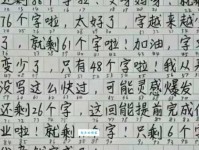 76个字啦，太好了，字越来越
了，就剩61个字啦！加油，字
变少了，只有48个字啦！我从
没写这么快过，可能灵感爆发
还剩26个字，这可能提前完成
业啦！就剩 字！只剩6个